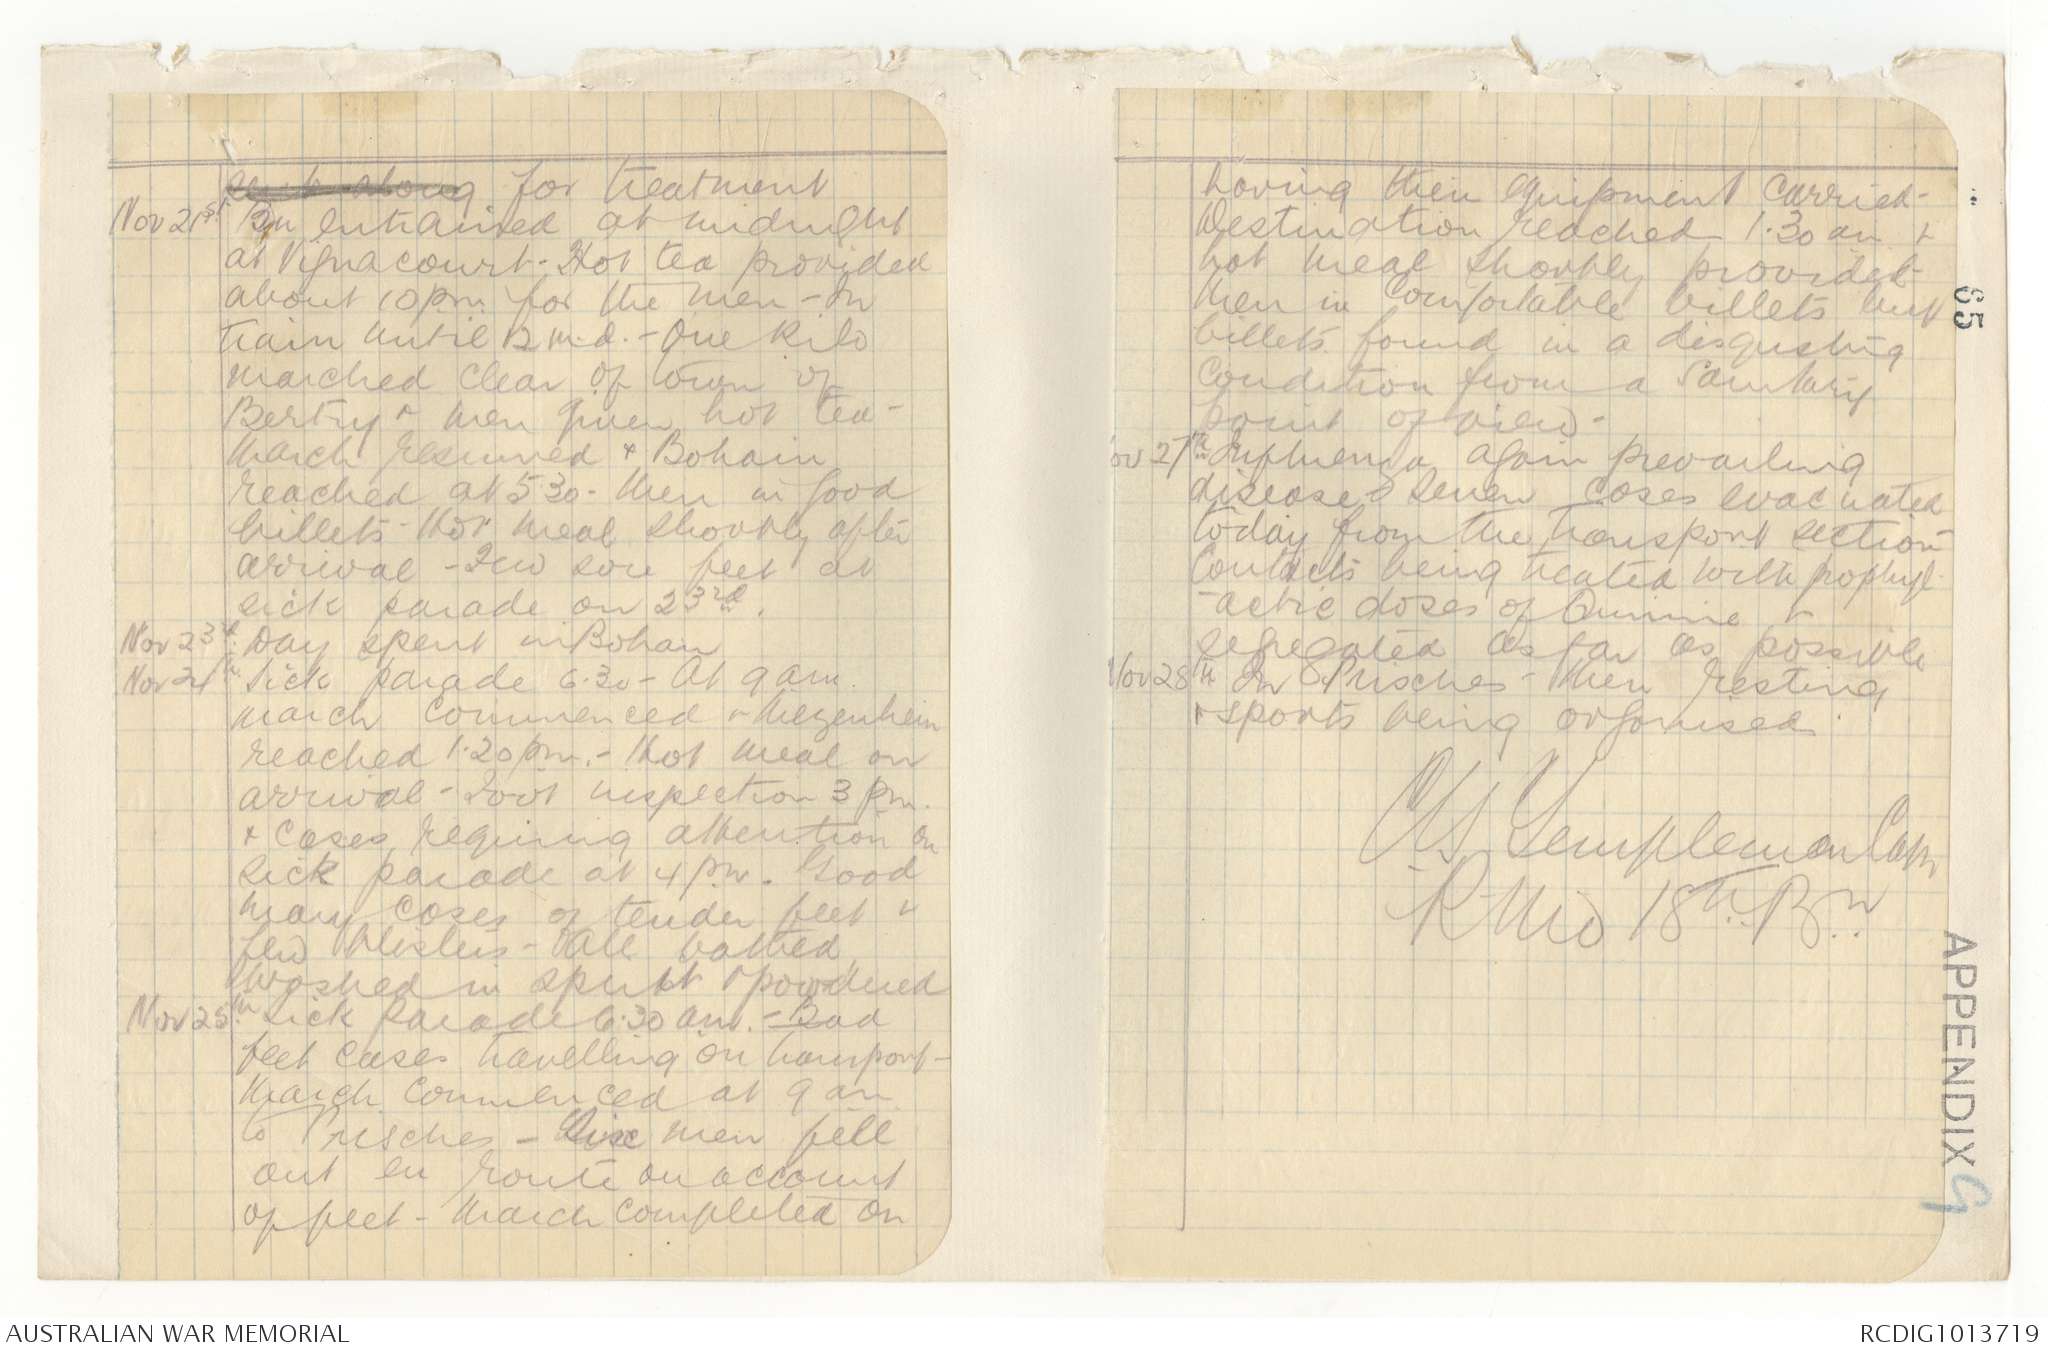 for treatment
Nov 21st Bn entrained at midnight
at Vignacourt - Hot tea provided
about 10 pm. for the men - in
train until 12 m.d. - One Kilo
marched clear of town of
Bertry & men given hot tea -
March resumed & Bohain
reached at 5 30 - Men in good
billets - Hot meal shortly after
arrival - Few sore feet at
sick parade on 23rd.
Nov 23rd. Day spent in Bohain
Nov 24th. Sick parade 6.30 - At 9 am.
march commenced & Mezenheim
reached 1.20 pm. - Hot meal on
arrival - Foot inspection 3 pm.
& cases requiring attention on
sick parade at 4 pm. Good
many cases of tender feet &
few blisters - All bathed,
washed in spirit & powdered
Nov 25th. Sick Parade 6.30 am. - Bad
feet cases travelling on transport -
March commenced at 9 am
to Prisches - men fell
out en route on account
of feet - March completed on
having their equipment carried -
Destination reached 1.30 am &
hot meal shortly provided -
Men in comfortable billets but
billets found in a disgusting
condition from a Sanitary
point of view -
Nov 27th Influenza again prevailing
disease - Seven cases evacuated
today from the transport section
Contacts being treated with prophyl-
-actic doses of Quinine &
segregated as far as possible
Nov 28th In Prisches - Men resting
& sports being organised.
Templeman Capt
R.M.O 18th. Bn
65
APPENDIX 9
AUSTRALIAN WAR MEMORIAL
RCDIG1013719